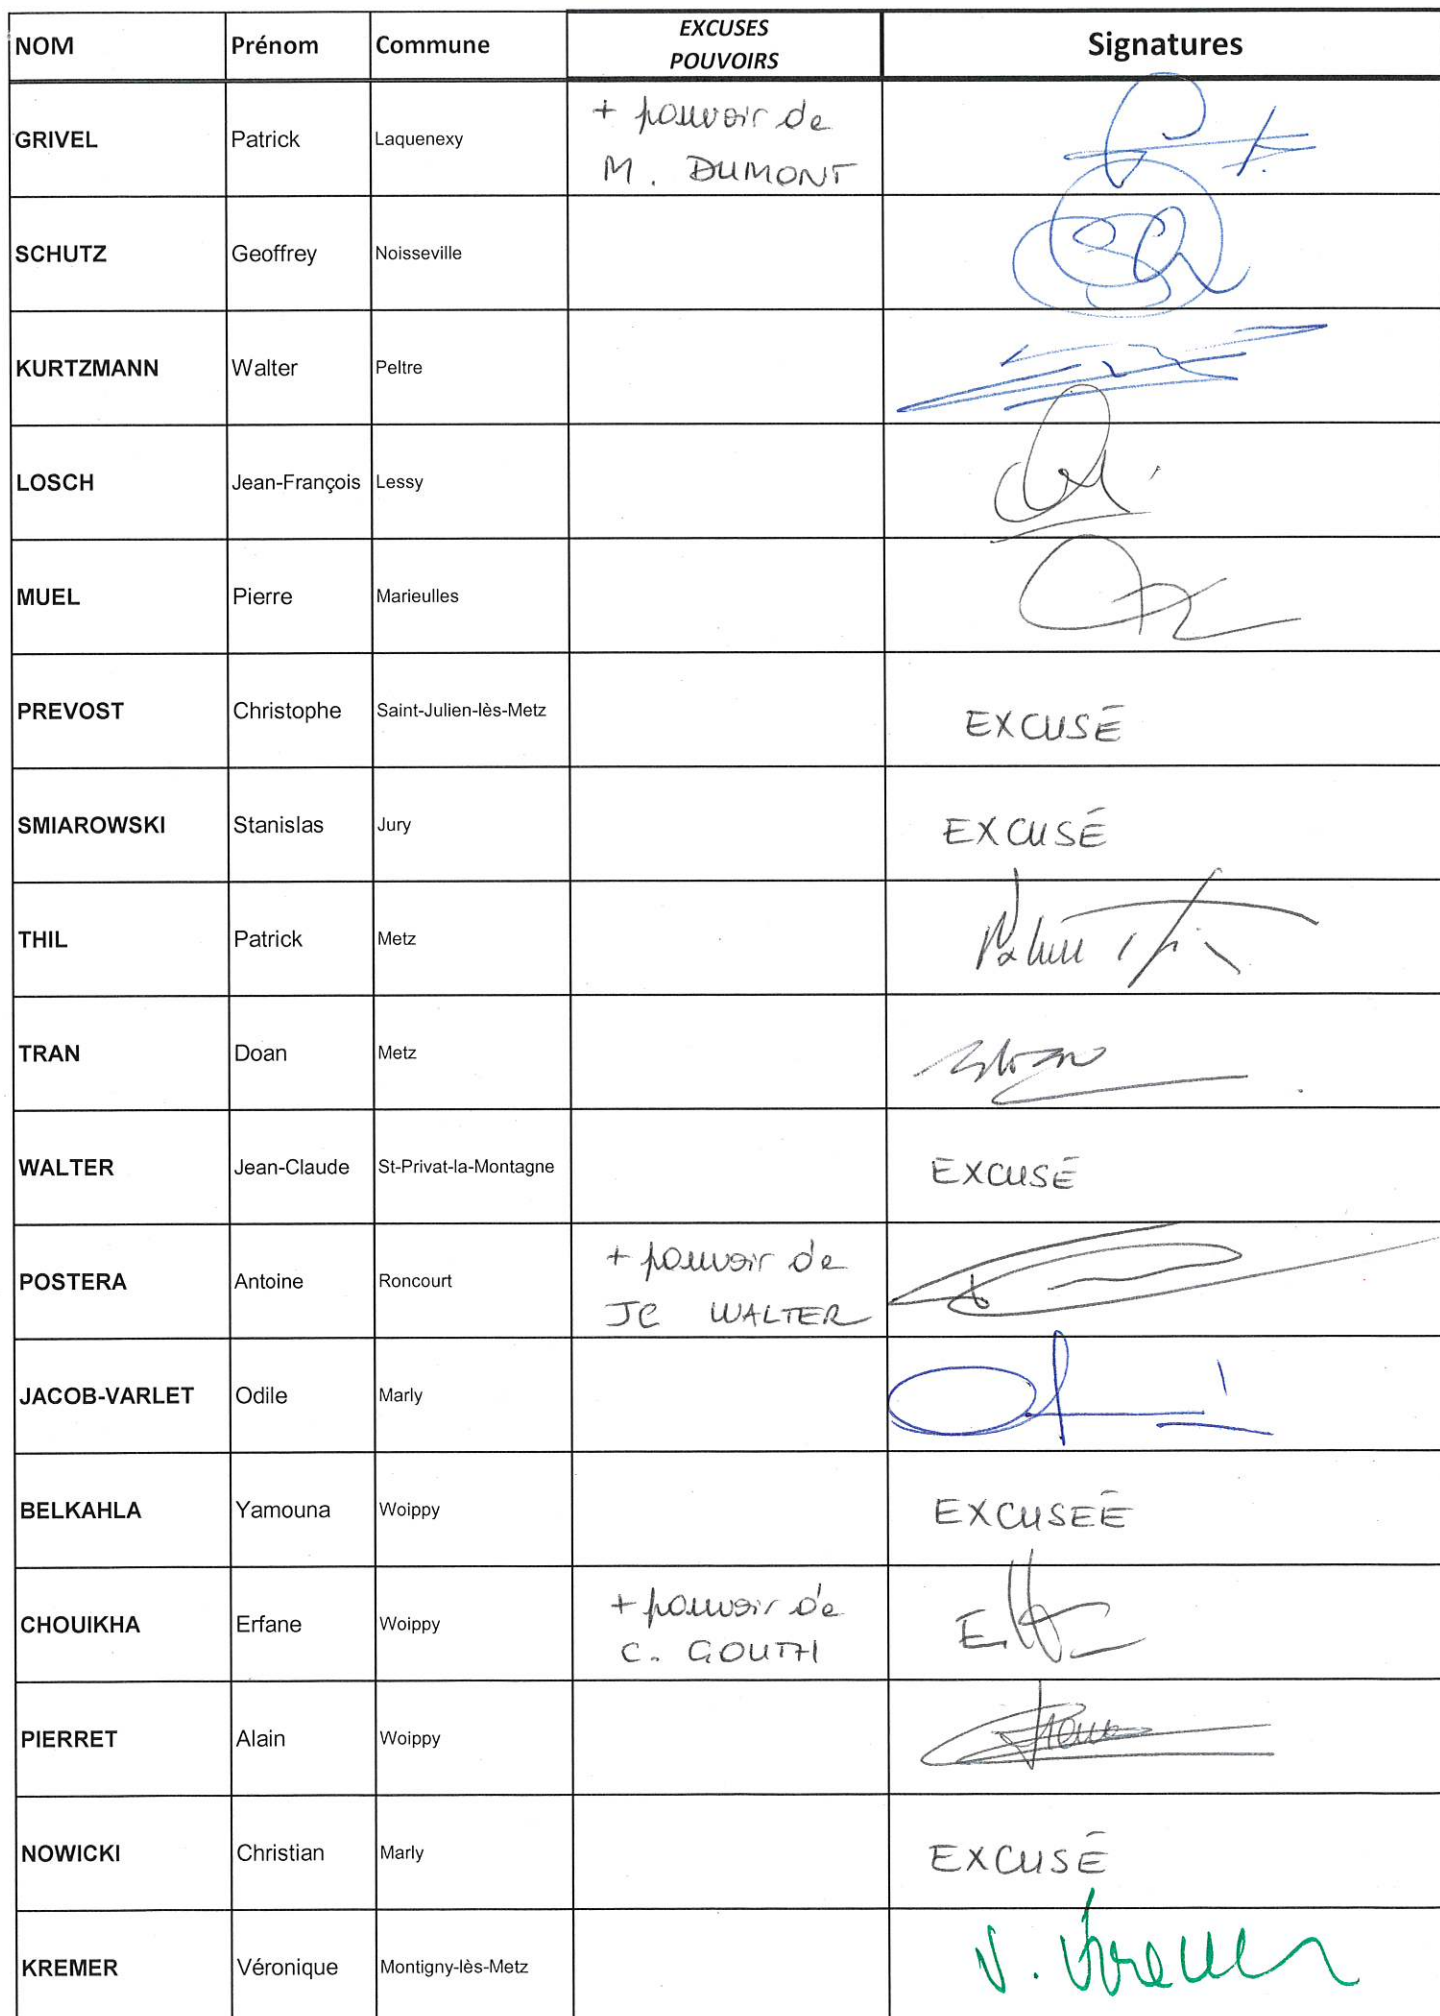 NOM Prénom Commune EXCUSES Signatures
POUVOIRS
GRIVEL Patrick Laquenexy + pouvoir de
M. DUMONT
SCHUTZ Geoffrey Noisseville
KURTZMANN Walter Peltre
LOSCH Jean-François Lessy
MUEL Pierre Marieulles
PREVOST Christophe Saint-Julien-lès-Metz EXCUSÉ
SMIAROWSKI Stanislas Jury EXCUSÉ
THIL Patrick Metz
TRAN Doan Metz
WALTER Jean-Claude St-Privat-la-Montagne EXCUSÉ
POSTERA Antoine Roncourt + pouvoir de
JC WALTER
JACOB-VARLET Odile Marly
BELKAHLA Yamouna Woippy EXCUSEÉ
CHOUIKHA Erfane Woippy + pouvoir de
C. GOUTHI
PIERRET Alain Woippy
NOWICKI Christian Marly EXCUSÉ
KREMER Véronique Montigny-lès-Metz V. Kremer